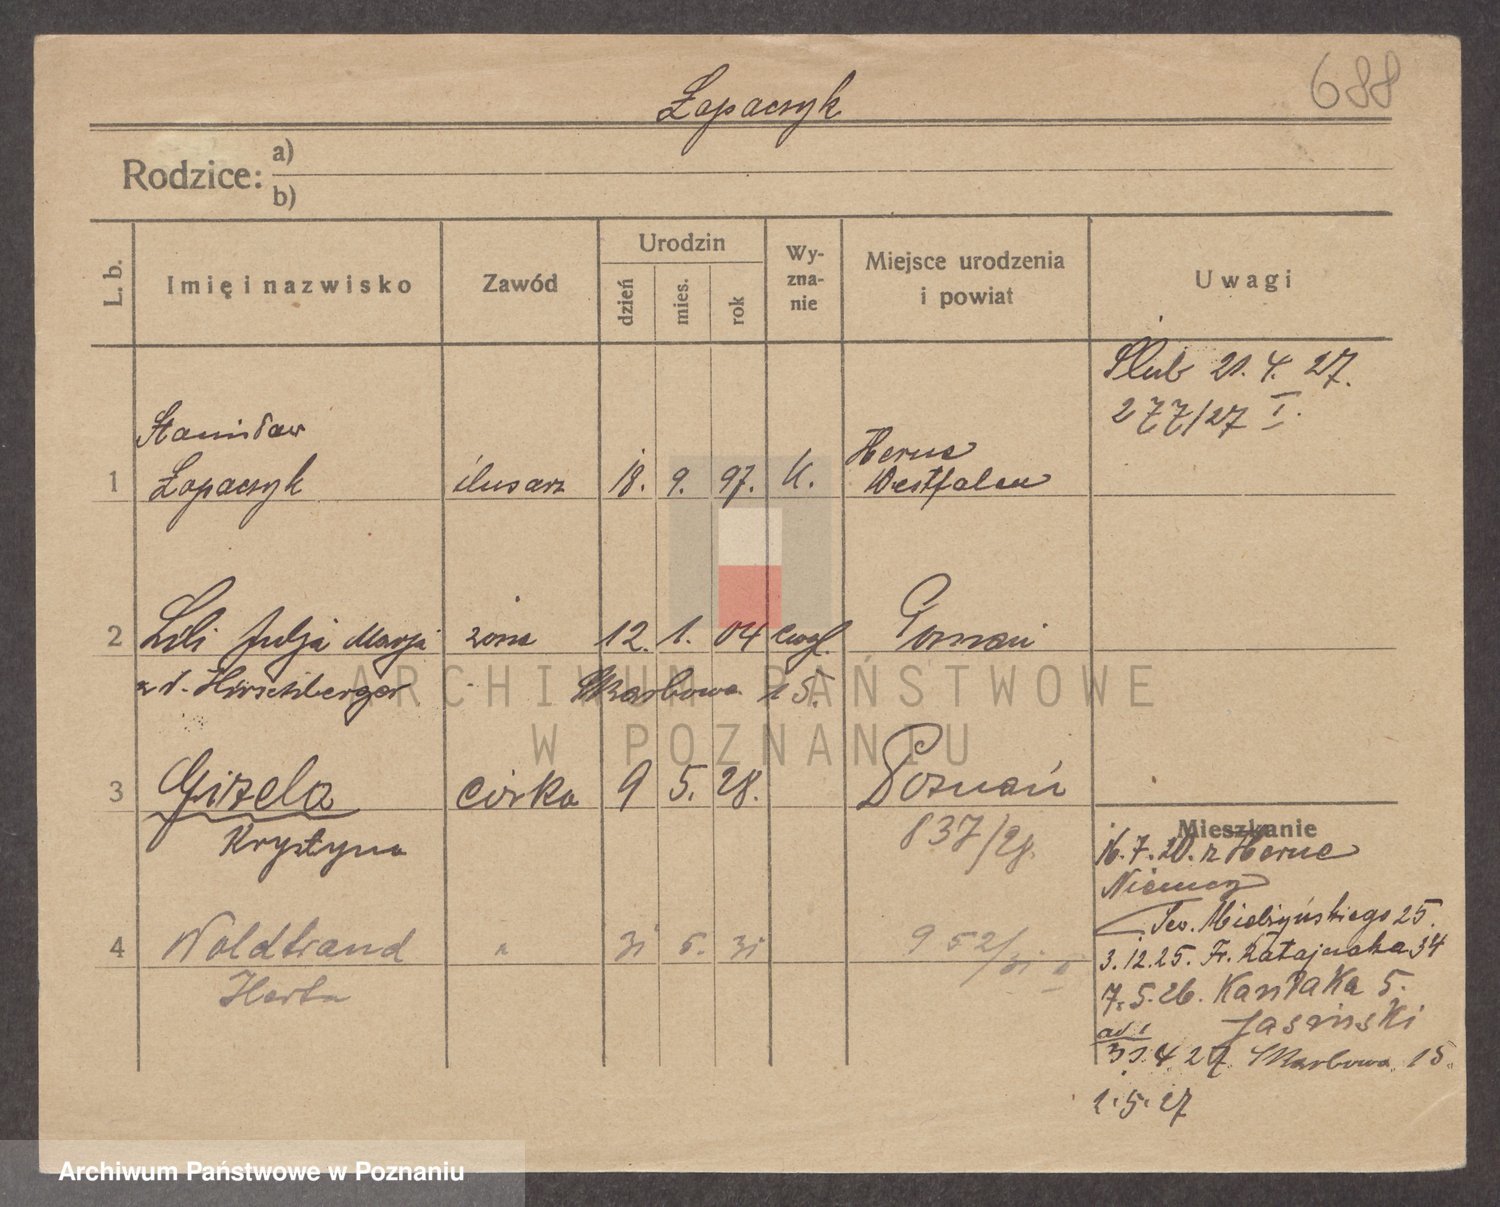 688
Łopaczyk
Rodzice:
a)
b)
L. b.
Imię i nazwisko
Zawód
Urodzin
dzień
mies.
rok
Wy-
zna-
nie
Miejsce urodzenia
i powiat
Uwagi
Ślub 21. 4. 27.
277/27 I.
Stanisław
1 Łopaczyk ślusarz 18. 9. 97. k. Herne
Westfalen
2 Lili Julja Marja żona 12. 1. 04 ewgl. Poznań
z d. Hirschberger Skarbowa 15.
3 Gizela córka 9 5. 28. Poznań
Krystyna 837/28.
4 Woldtraud " 31 5. 31 952/31 I
Herta
Mieszkanie
16. 7. 20. z Herne
Niemcy
Sew. Mielżyńskiego 25.
3. 12. 25. Fr. Ratajczaka 34
7. 5. 26. Kantaka 5.
Jasiński
ad 1
31. 4 27 Skarbowa 15.
2. 5. 27
ARCHIWUM PAŃSTWOWE
W POZNANIU
Archiwum Państwowe w Poznaniu